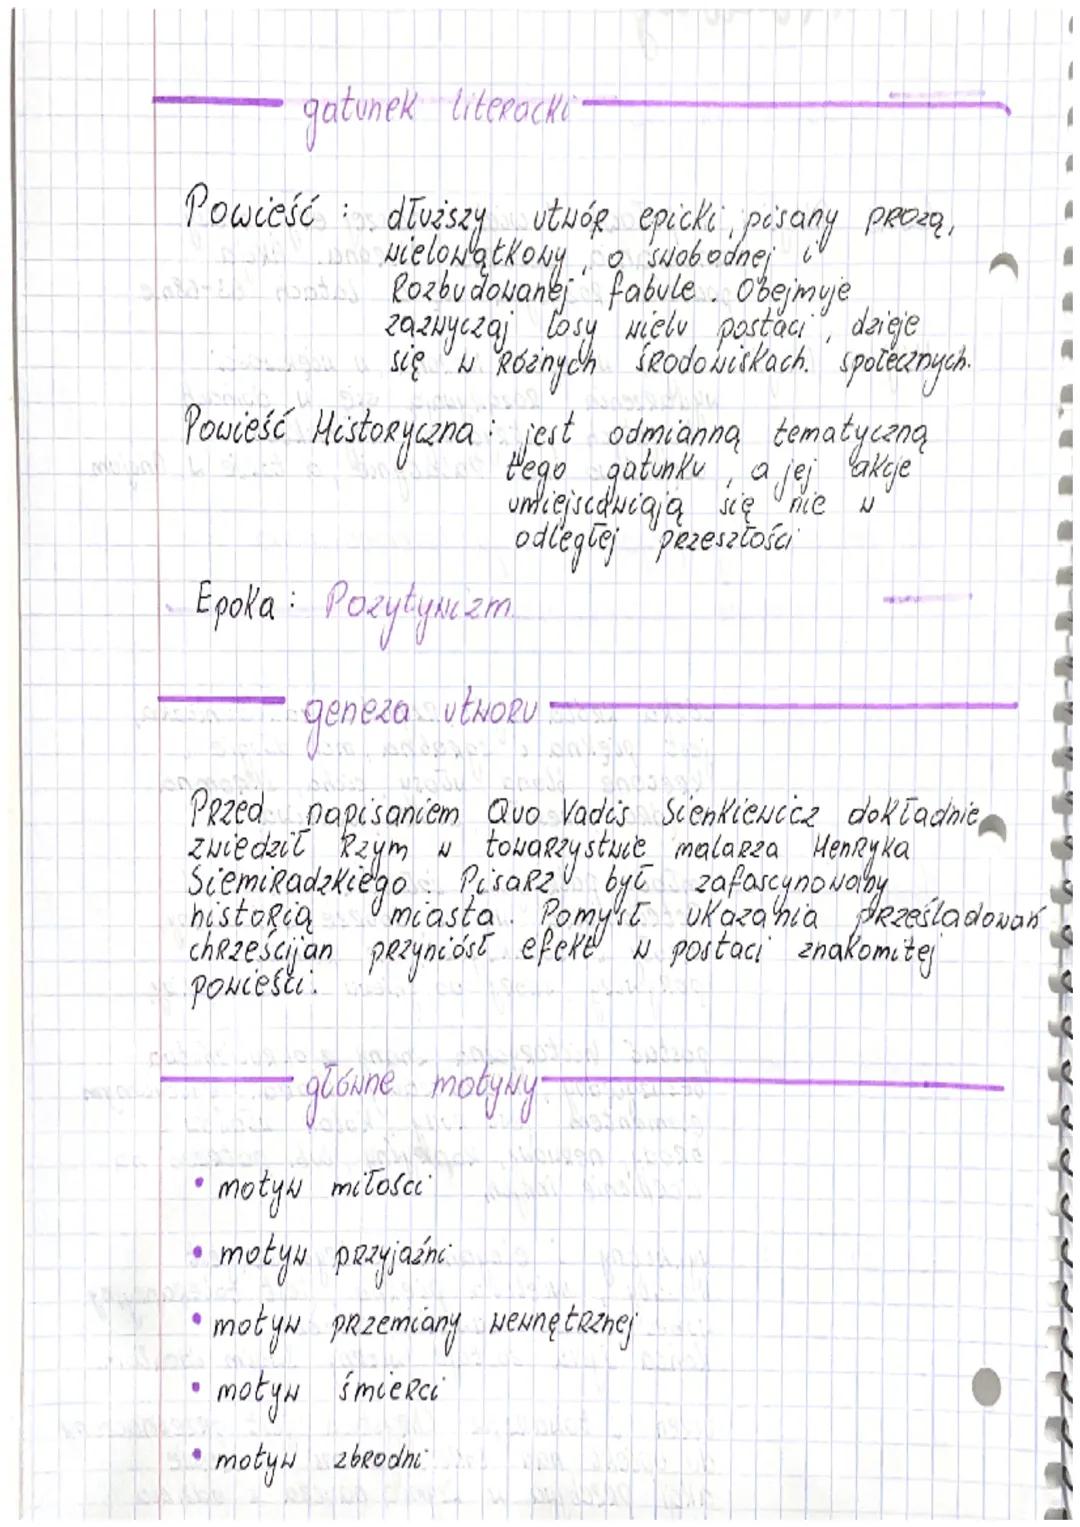 gatunek literacki
Powieść : dłuższy utwór epicki, pisany prozą,
wielowątkowy, o swobodnej i
Rozbudowanej fabule. Obejmuje
zazwyczaj losy wielu postaci, dzieje
się w różnych środowiskach. społecznych.
Powieść Historyczna : jest odmianną tematyczną
tego gatunku, a jej akcje
umiejscawiają się nie w
odległej przeszłości
Epoka : Pozytywizm
geneza utworu
Przed napisaniem Quo Vadis Sienkiewicz dokładnie
zwiedził Rzym w towarzystwie malarza Henryka
Siemiradzkiego. Pisarz był zafascynowany
historią miasta. Pomysł ukazania prześladowań
chrześcijan przyniósł efekt w postaci znakomitej
powieści.
główne motywy
• motyw miłości
• motyw przyjaźni
• motyw przemiany wewnętrznej
• motyw śmierci
• motyw zbrodni